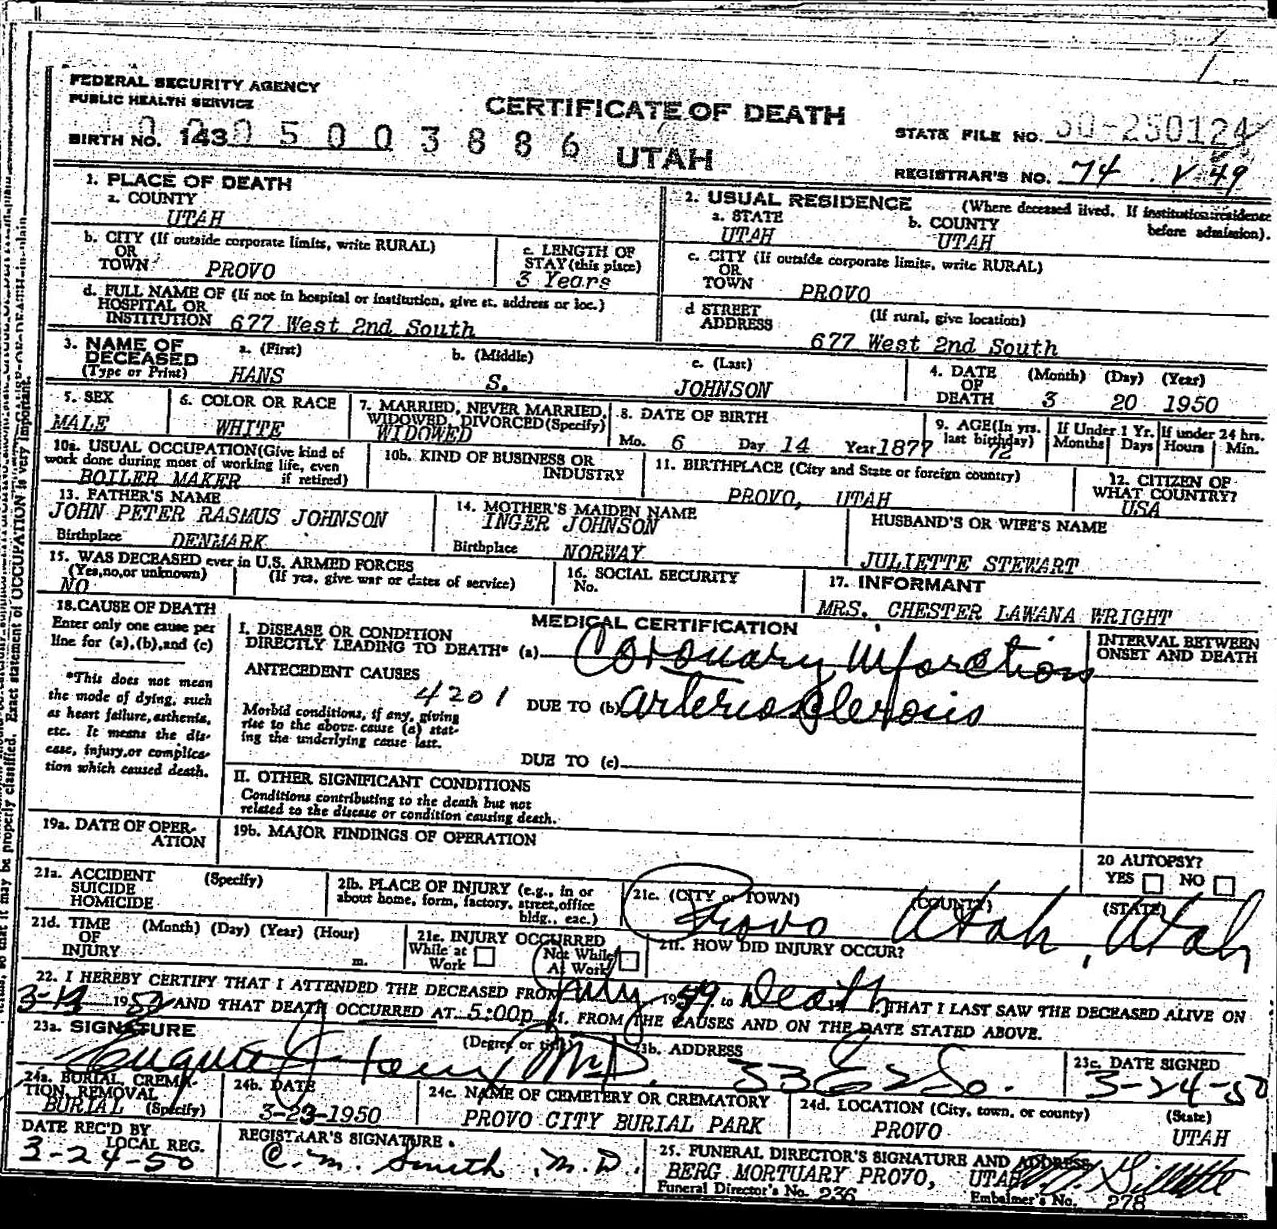 FEDERAL SECURITY AGENCY
PUBLIC HEALTH SERVICE
CERTIFICATE OF DEATH
UTAH
BIRTH NO. 143
5003886
STATE FILE NO. 50-250124
REGISTRAR'S NO. 74 V-49
1. PLACE OF DEATH
a. COUNTY
UTAH
b. CITY (If outside corporate limits, write RURAL)
OR
TOWN PROVO
c. LENGTH OF
STAY (this place)
3 Years
d. FULL NAME OF (If not in hospital or institution, give st. address or loc.)
HOSPITAL OR
INSTITUTION 677 West 2nd South
2. USUAL RESIDENCE (Where deceased lived. If institution: residence
before admission).
a. STATE b. COUNTY
UTAH UTAH
c. CITY (If outside corporate limits, write RURAL)
OR
TOWN PROVO
d STREET (If rural, give location)
ADDRESS
677 West 2nd South
3. NAME OF
DECEASED
(Type or Print)
a. (First) b. (Middle) c. (Last)
HANS S. JOHNSON
4. DATE (Month) (Day) (Year)
OF
DEATH 3 20 1950
5. SEX
MALE
6. COLOR OR RACE
WHITE
7. MARRIED, NEVER MARRIED,
WIDOWED, DIVORCED (Specify)
WIDOWED
8. DATE OF BIRTH
Mo. 6 Day 14 Year 1877
9. AGE (In yrs.
last birthday)
72
If Under 1 Yr.
Months Days
If under 24 hrs.
Hours Min.
10a. USUAL OCCUPATION (Give kind of
work done during most of working life, even
if retired)
BOILER MAKER
10b. KIND OF BUSINESS OR
INDUSTRY
11. BIRTHPLACE (City and State or foreign country)
PROVO, UTAH
12. CITIZEN OF
WHAT COUNTRY?
USA
13. FATHER'S NAME
JOHN PETER RASMUS JOHNSON
Birthplace DENMARK
14. MOTHER'S MAIDEN NAME
INGER JOHNSON
Birthplace NORWAY
HUSBAND'S OR WIFE'S NAME
JULIETTE STEWART
15. WAS DECEASED ever in U.S. ARMED FORCES
(Yes, no, or unknown) (If yes, give war or dates of service)
NO
16. SOCIAL SECURITY
No.
17. INFORMANT
MRS. CHESTER LAWANA WRIGHT
18. CAUSE OF DEATH
Enter only one cause per
line for (a), (b), and (c)
*This does not mean
the mode of dying, such
as heart failure, asthenia,
etc. It means the dis-
ease, injury, or complica-
tion which caused death.
MEDICAL CERTIFICATION
I. DISEASE OR CONDITION
DIRECTLY LEADING TO DEATH* (a) Coronary Infarction
ANTECEDENT CAUSES
4201
Morbid conditions, if any, giving
rise to the above cause (a) stat-
ing the underlying cause last.
DUE TO (b) arteriosclerosis
DUE TO (c)
II. OTHER SIGNIFICANT CONDITIONS
Conditions contributing to the death but not
related to the disease or condition causing death.
INTERVAL BETWEEN
ONSET AND DEATH
19a. DATE OF OPER-
ATION
19b. MAJOR FINDINGS OF OPERATION
20 AUTOPSY?
YES NO
21a. ACCIDENT (Specify)
SUICIDE
HOMICIDE
21b. PLACE OF INJURY (e.g., in or
about home, form, factory, street, office
bldg., eac.)
21c. (CITY OR TOWN) (COUNTY) (STATE)
Provo Utah, Utah
21d. TIME (Month) (Day) (Year) (Hour)
OF
INJURY m.
21e. INJURY OCCURRED
While at Work Not While At Work
21f. HOW DID INJURY OCCUR?
22. I HEREBY CERTIFY THAT I ATTENDED THE DECEASED FROM July 1949 to Death, THAT I LAST SAW THE DECEASED ALIVE ON
3-14 1950 AND THAT DEATH OCCURRED AT 5:00p M. FROM THE CAUSES AND ON THE DATE STATED ABOVE.
23a. SIGNATURE (Degree or title)
M.D.
23b. ADDRESS
33 E 2 So.
23c. DATE SIGNED
3-24-50
24a. BURIAL, CREMA-
TION, REMOVAL
BURIAL (Specify)
24b. DATE
3-23-1950
24c. NAME OF CEMETERY OR CREMATORY
PROVO CITY BURIAL PARK
24d. LOCATION (City, town, or county) (State)
PROVO UTAH
DATE REC'D BY
LOCAL REG.
3-24-50
REGISTRAR'S SIGNATURE
C. M. Smith M.D.
25. FUNERAL DIRECTOR'S SIGNATURE AND ADDRESS
BERG MORTUARY PROVO, UTAH
Funeral Director's No. 236 Embalmer's No. 278